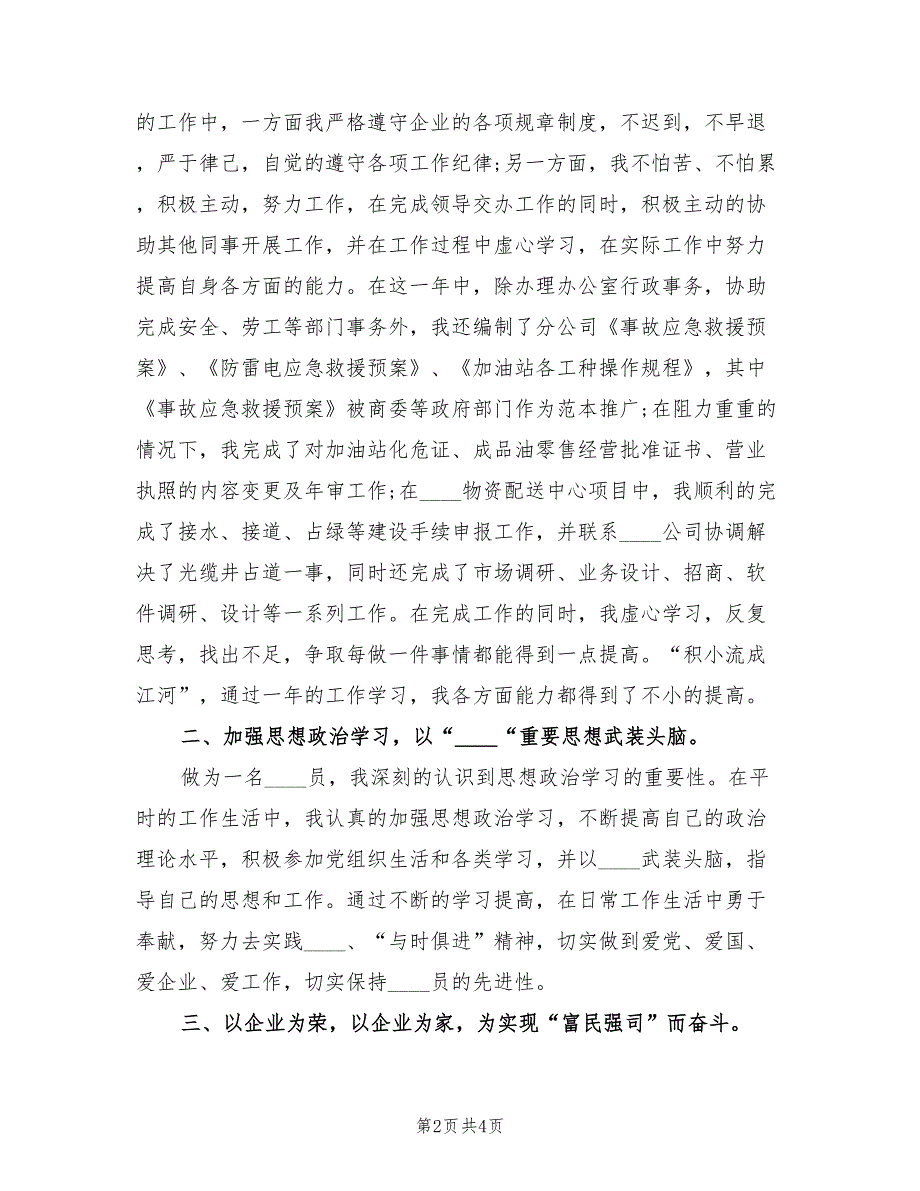 的工作中，一方面我严格遵守企业的各项规章制度，不迟到，不早退
，严于律己，自觉的遵守各项工作纪律;另一方面，我不怕苦、不怕累
，积极主动，努力工作，在完成领导交办工作的同时，积极主动的协
助其他同事开展工作，并在工作过程中虚心学习，在实际工作中努力
提高自身各方面的能力。在这一年中，除办理办公室行政事务，协助
完成安全、劳工等部门事务外，我还编制了分公司《事故应急救援预
案》、《防雷电应急救援预案》、《加油站各工种操作规程》，其中
《事故应急救援预案》被商委等政府部门作为范本推广;在阻力重重的
情况下，我完成了对加油站化危证、成品油零售经营批准证书、营业
执照的内容变更及年审工作;在____物资配送中心项目中，我顺利的完
成了接水、接道、占绿等建设手续申报工作，并联系____公司协调解
决了光缆井占道一事，同时还完成了市场调研、业务设计、招商、软
件调研、设计等一系列工作。在完成工作的同时，我虚心学习，反复
思考，找出不足，争取每做一件事情都能得到一点提高。“积小流成
江河”，通过一年的工作学习，我各方面能力都得到了不小的提高。
二、加强思想政治学习，以“____“重要思想武装头脑。
做为一名____员，我深刻的认识到思想政治学习的重要性。在平
时的工作生活中，我认真的加强思想政治学习，不断提高自己的政治
理论水平，积极参加党组织生活和各类学习，并以____武装头脑，指
导自己的思想和工作。通过不断的学习提高，在日常工作生活中勇于
奉献，努力去实践____、“与时俱进”精神，切实做到爱党、爱国、
爱企业、爱工作，切实保持____员的先进性。
三、以企业为荣，以企业为家，为实现“富民强司”而奋斗。
第2页 共4页